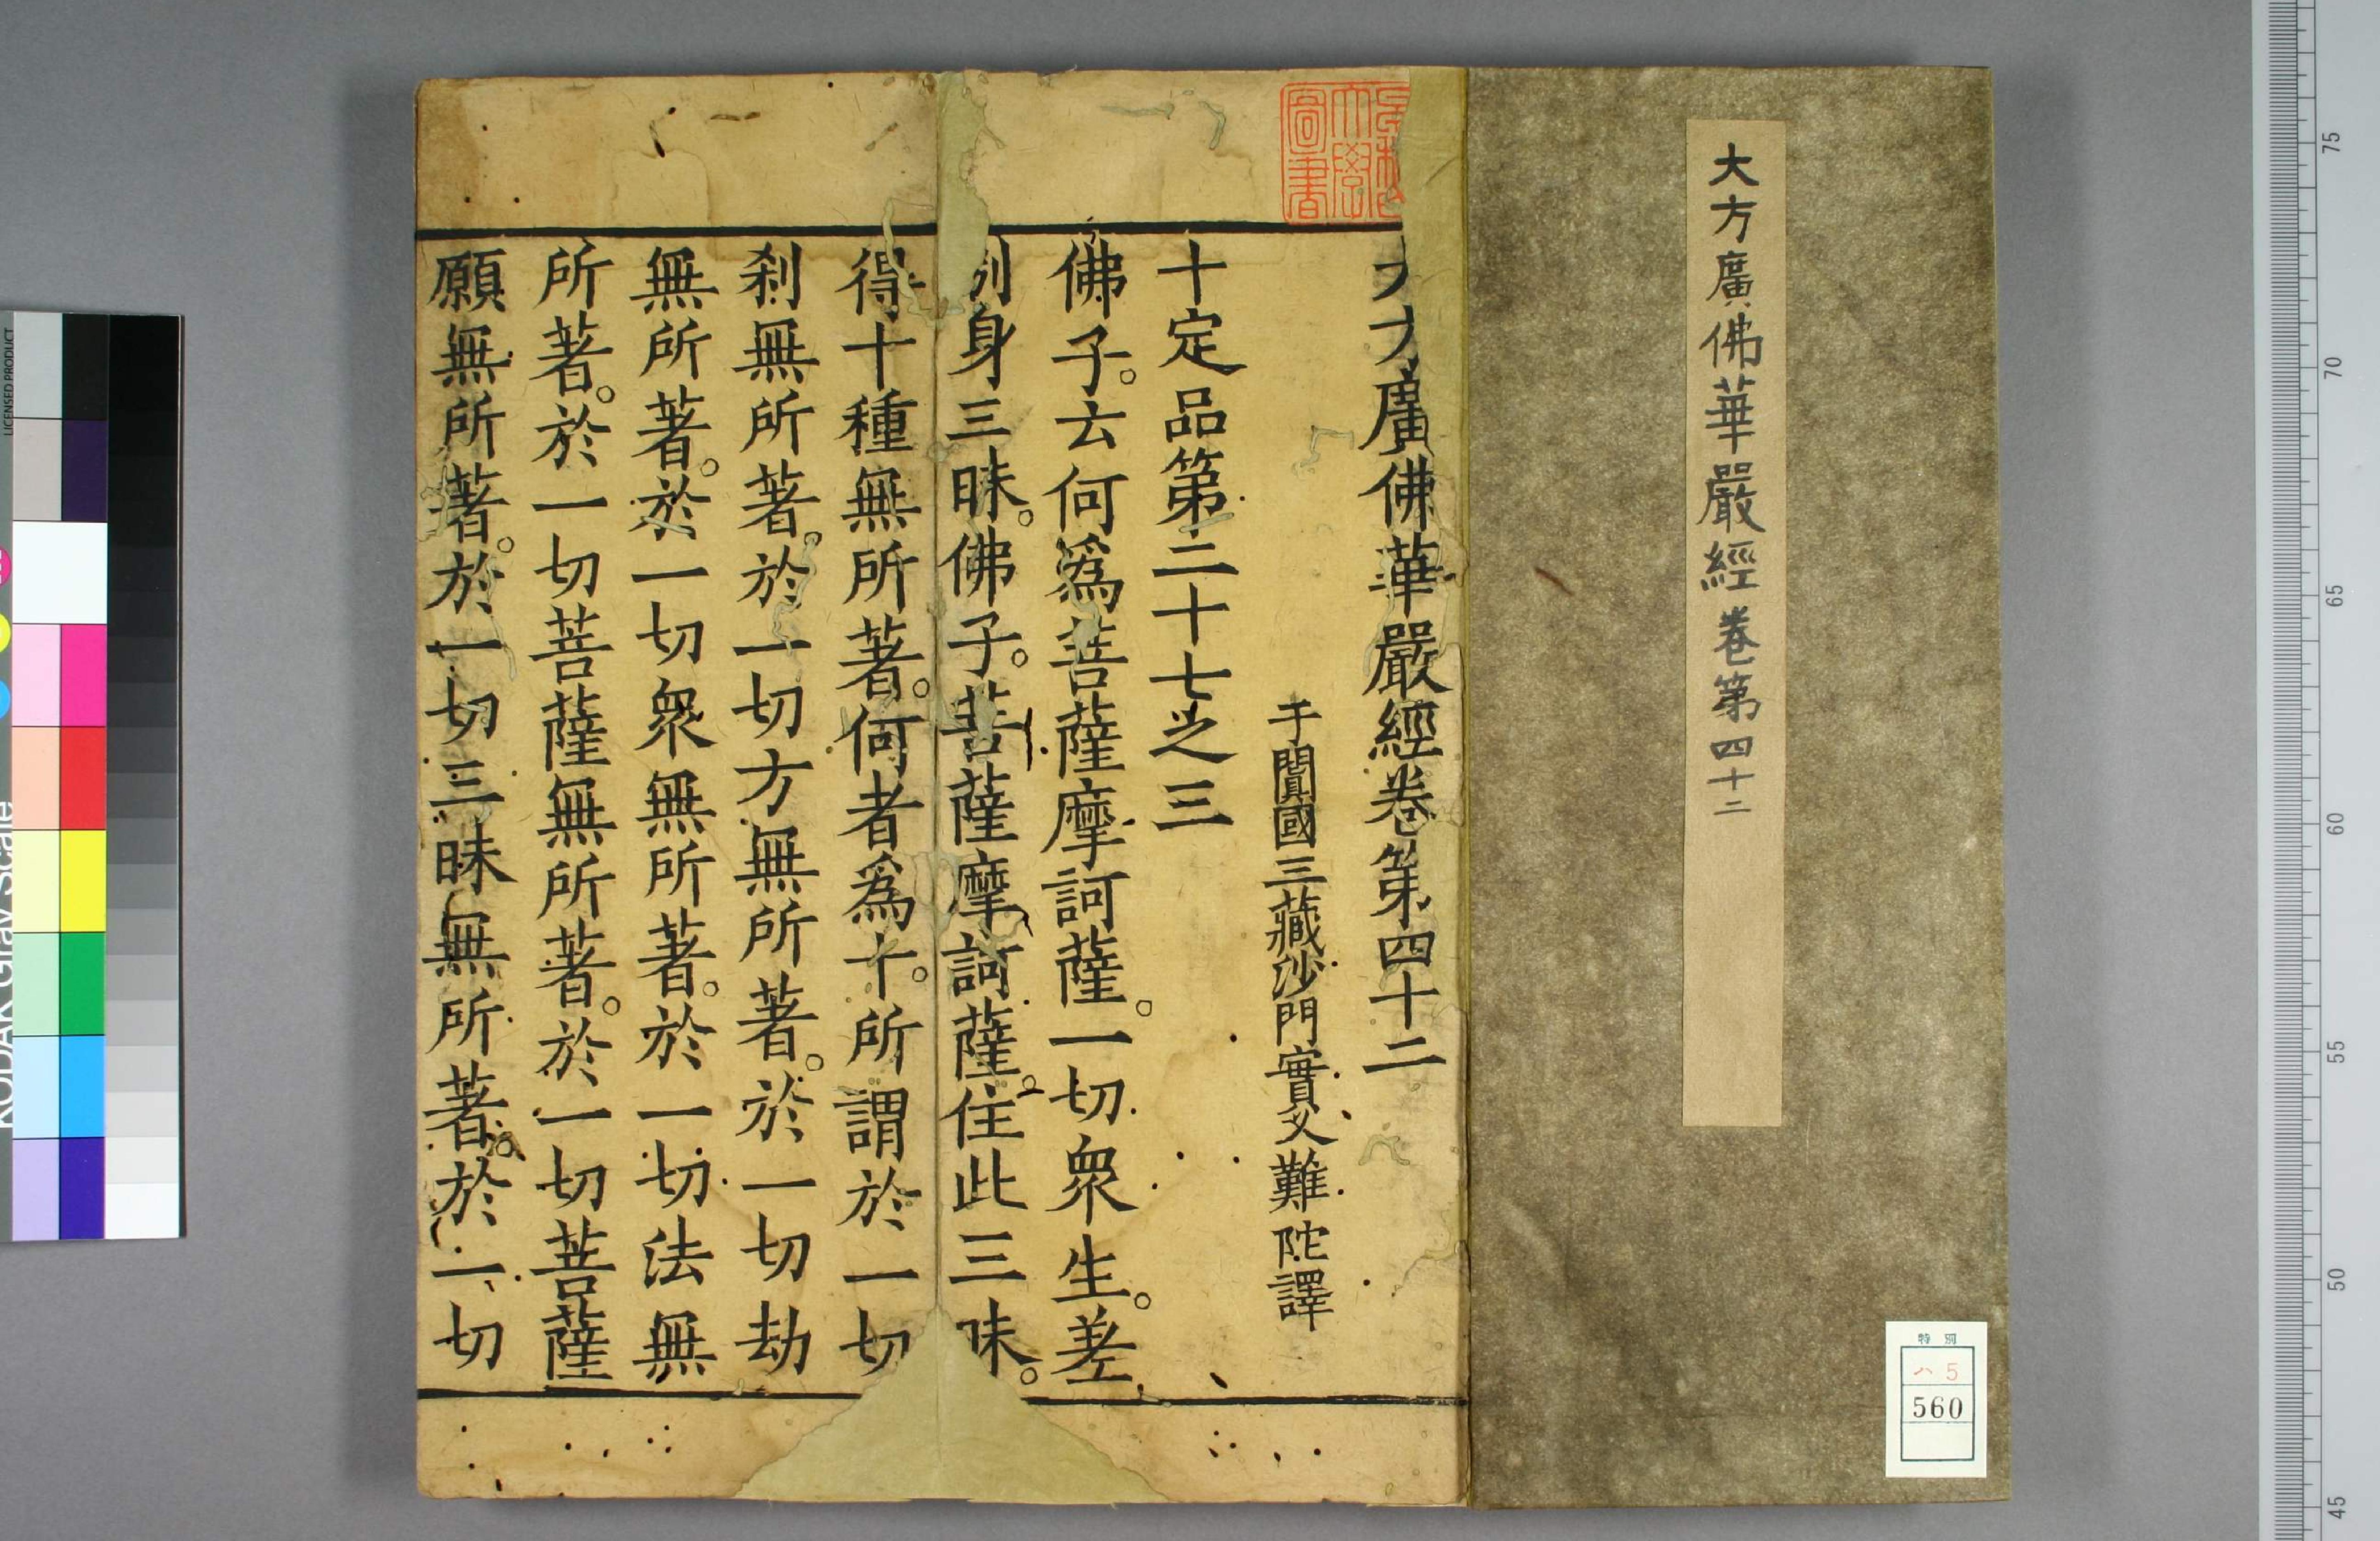 大方廣佛華嚴經卷第四十二
特別
ハ5
560
大方廣佛華嚴經卷第四十二
于闐國三藏沙門實叉難陀譯
十定品第二十七之三
佛子。云何爲菩薩摩訶薩。一切衆生。差
別身三昧。佛子。菩薩摩訶薩。住此三昧。
得十種無所著。何者爲十。所謂於一切
刹無所著。於一切方無所著。於一切劫
無所著。於一切衆無所著。於一切法無
所著。於一切菩薩無所著。於一切菩薩
願無所著。於一切三昧無所著。於一切
圖書
大學
LICENSED PRODUCT
KODAK Gray Scale
75
70
65
60
55
50
45